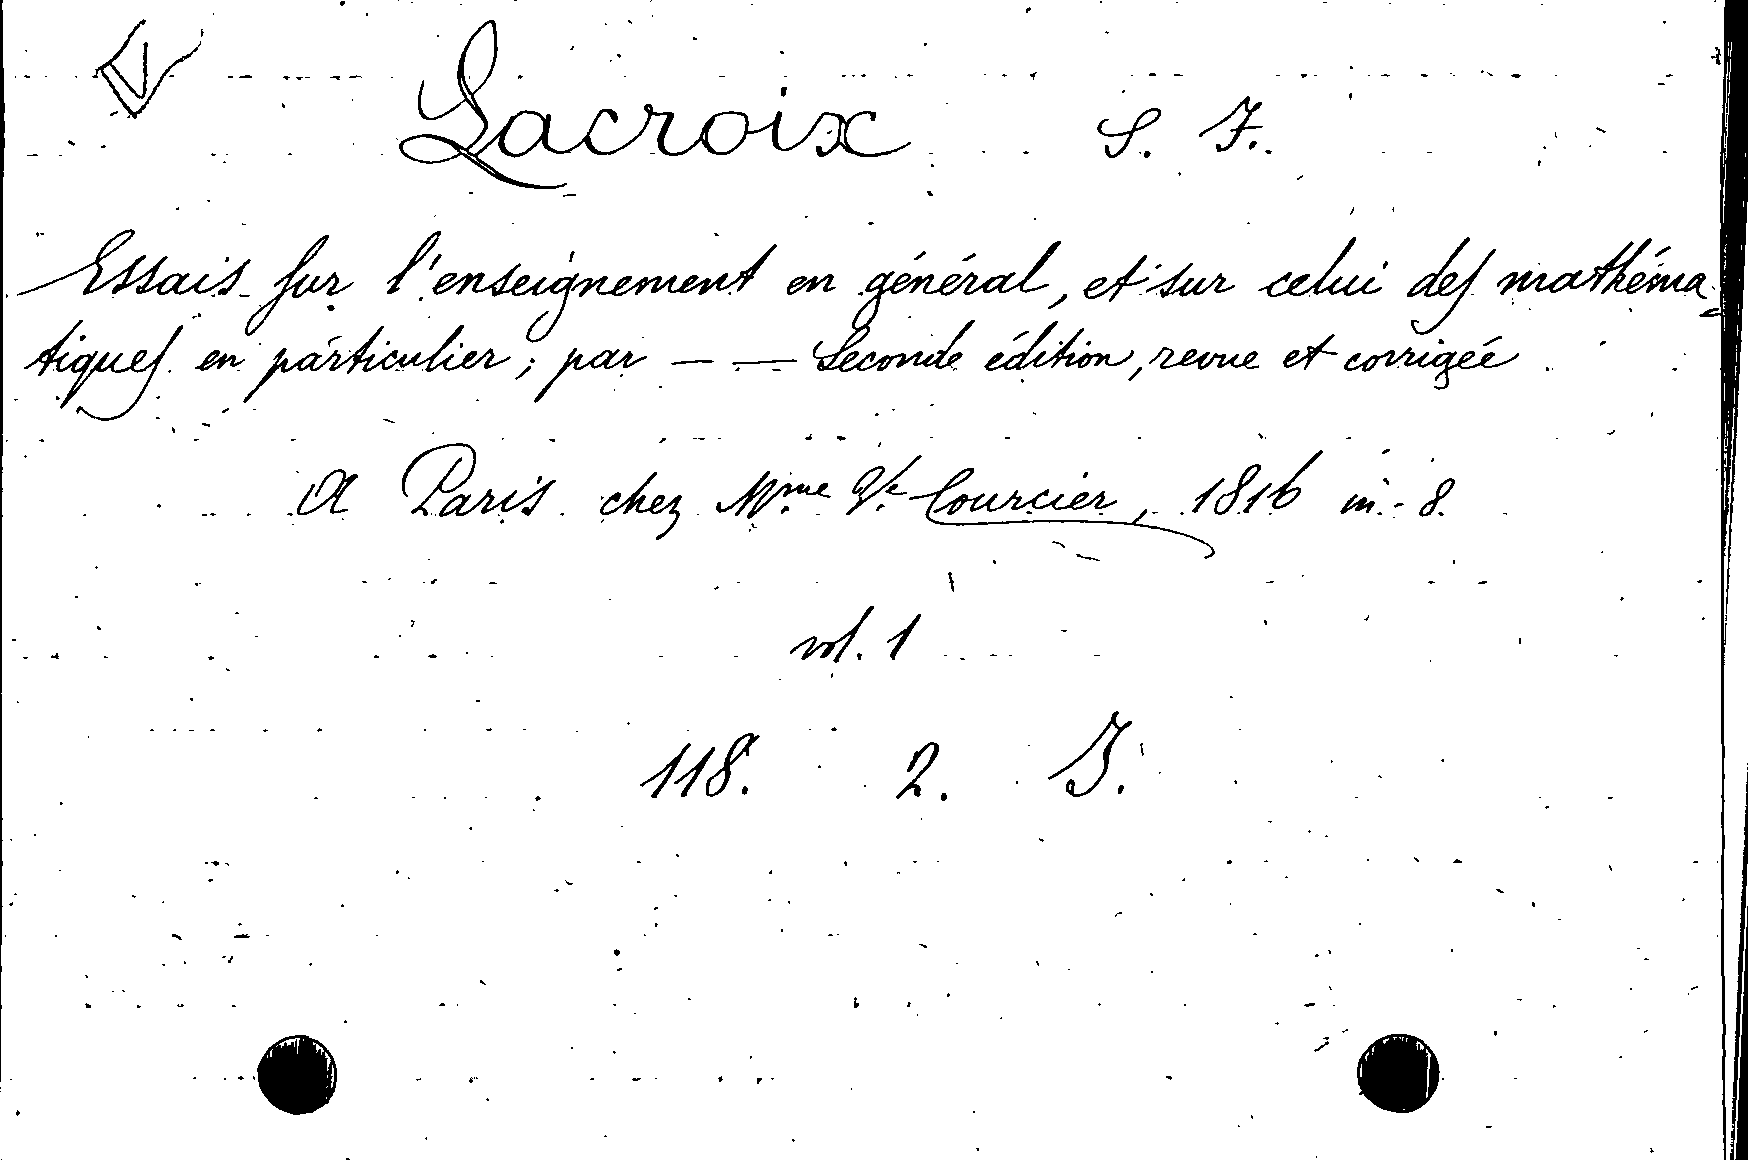 Lacroix S. F.
Essais sur l'enseignement en général, et sur celui des mathéma=
tiques en particulier; par — — Seconde édition, revue et corrigée
A Paris chez Mme Ve Courcier, 1816 in-8.
vol. 1
118. 2. I.